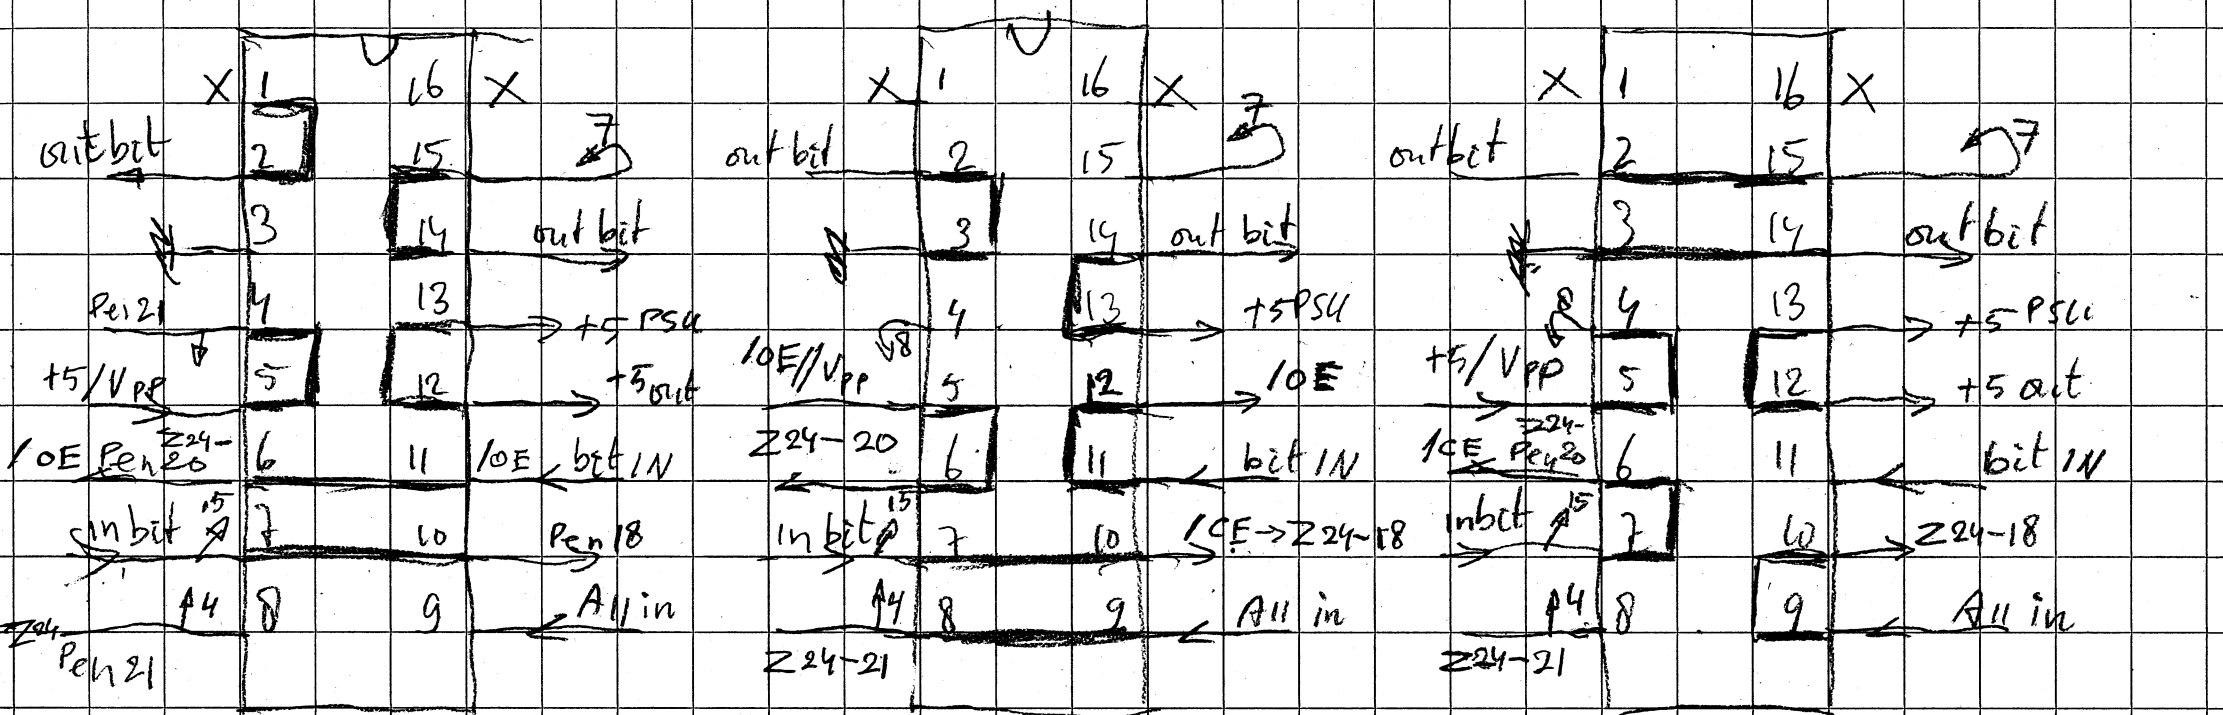 X 1 16 X
outbit 2 15 7
3 14 outbit
Pen21 4 13 +5 PSU
+5/VPP 5 12 +5out
/OE Pen Z24-20 6 11 /OE bit IN
in bit 15 7 10 Pen18
4 8 9 All in
Z24 Pen 21
X 1 16 X
outbit 2 15 7
3 14 outbit
8 4 13 +5PSU
/OE//VPP 5 12 /OE
Z24-20 6 11 bit IN
In bit 15 7 10 /CE→Z24-18
4 8 9 All in
Z24-21
X 1 16 X
outbit 2 15 7
3 14 outbit
8 4 13 +5 PSU
+5/VPP 5 12 +5 out
/CE Pen Z24-20 6 11 bit IN
inbit 15 7 10 Z24-18
4 8 9 All in
Z24-21